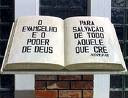 O
EVANGELHO
E O
PODER
DE DEUS
PARA
SALVAÇÃO
DE TODO
AQUELE
QUE CRÊ